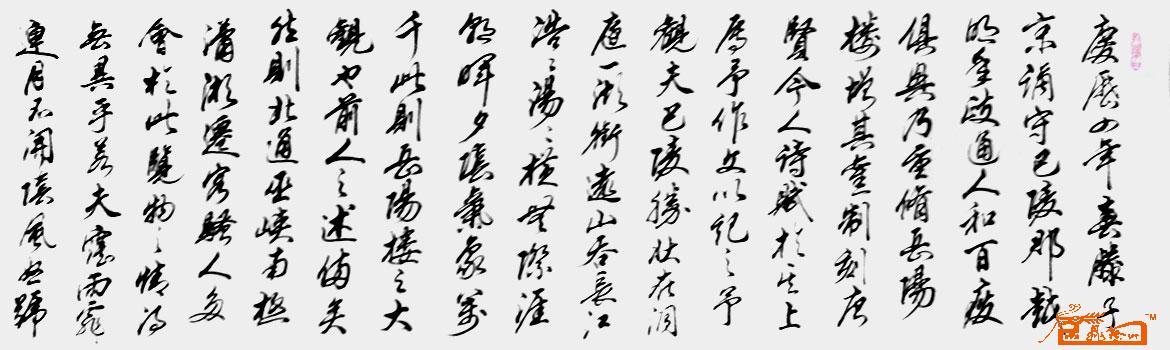 慶歷四年春滕子
京謫守巴陵郡越
明年政通人和百廢
俱興乃重脩岳陽
樓增其舊制刻唐
賢今人詩賦於其上
屬予作文以記之予
觀夫巴陵勝狀在洞
庭一湖銜遠山吞長江
浩浩湯湯橫無際涯
朝暉夕陰氣象萬
千此則岳陽樓之大
觀也前人之述備矣
然則北通巫峽南極
瀟湘遷客騷人多
會於此覽物之情得
無異乎若夫霪雨霏霏
連月不開陰風怒號
TM